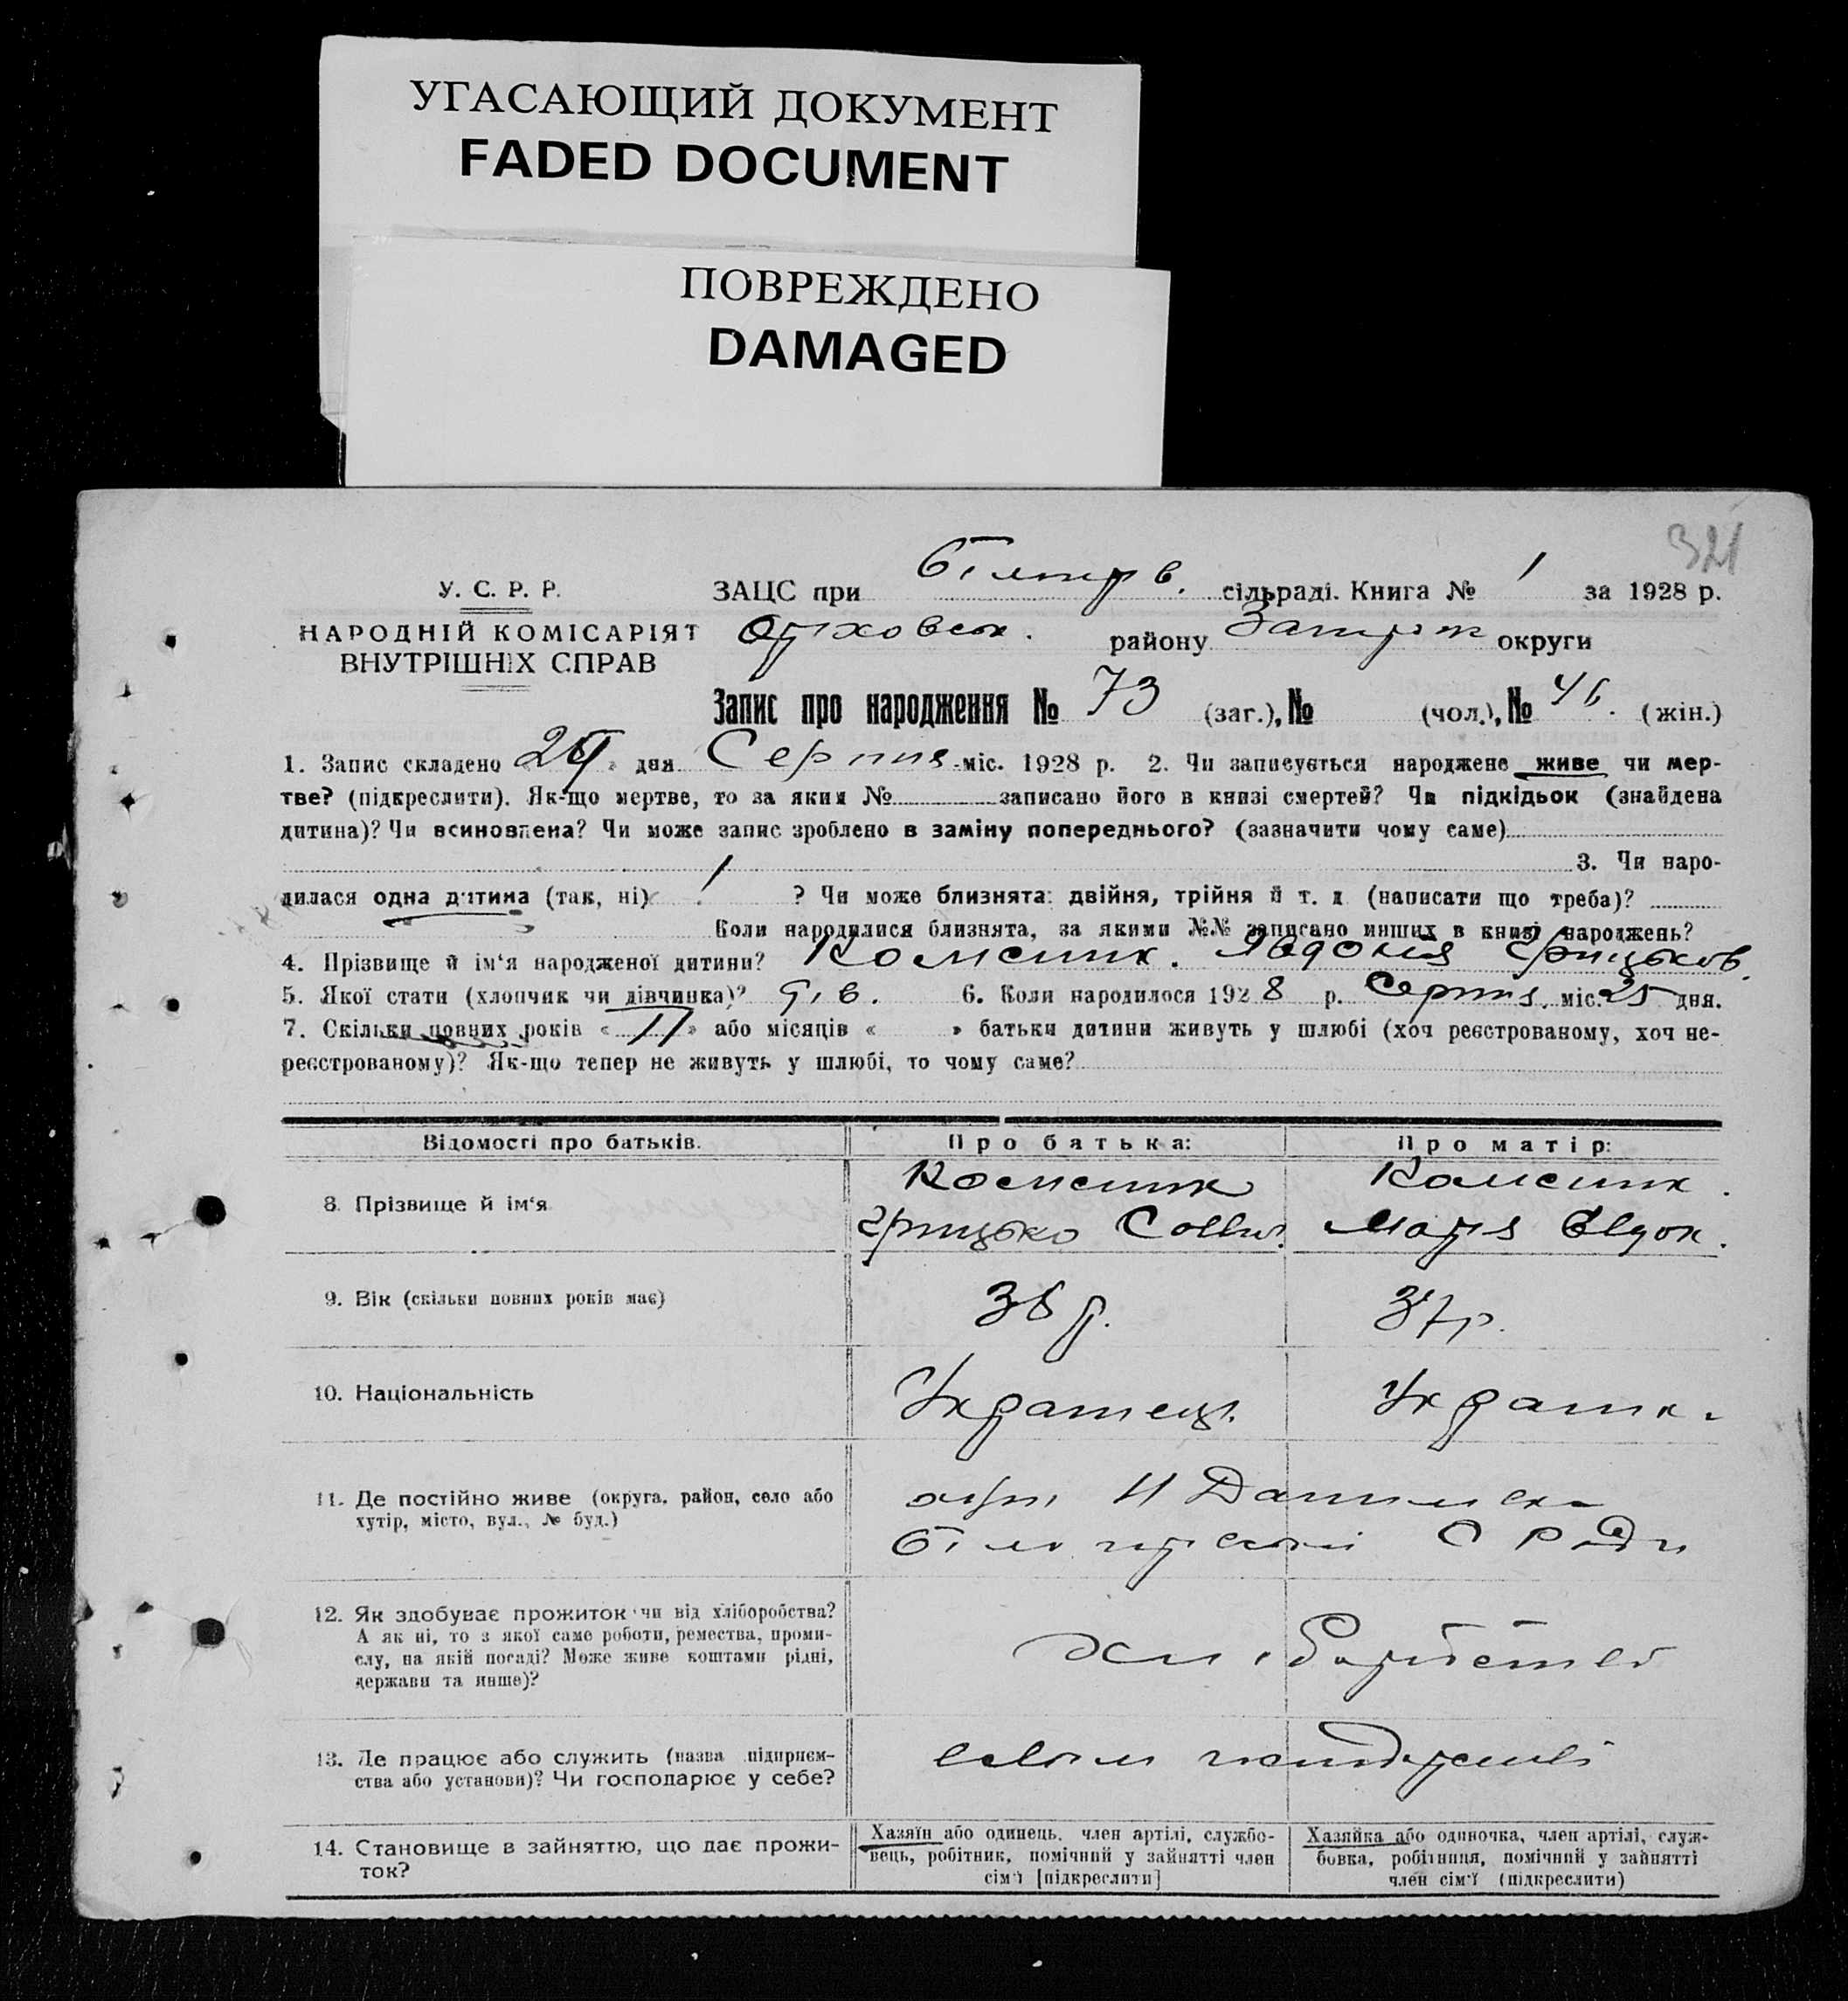 УГАСАЮЩИЙ ДОКУМЕНТ
FADED DOCUMENT
ПОВРЕЖДЕНО
DAMAGED
321
У. С. Р. Р.
НАРОДНІЙ КОМІСАРІЯТ
ВНУТРІШНІХ СПРАВ
ЗАЦС при сільраді. Книга № 1 за 1928 р.
району округи
Запис про народження № 73 (заг.), № (чол.), № (жін.)
1. Запис складено « » дня Серпня міс. 1928 р. 2. Чи записується народжене живе чи мер-
тве? (підкреслити). Як-що мертве, то за яким № записано його в книзі смертей? Чи підкідьок (знайдена
дитина)? Чи всиновлена? Чи може запис зроблено в заміну попереднього? (зазначити чому саме)
3. Чи наро-
дилася одна дитина (так, ні) 1 ? Чи може близнята: двійня, трійня й т. д (написати що треба)?
Коли народилися близнята, за якими №№ записано инших в книзі народжень?
4. Прізвище й ім'я народженої дитини? Явдокія
5. Якої стати (хлопчик чи дівчинка)? дів. 6. Коли народилося 1928 р. Серпня міс. 25 дня.
7. Скільки повних років « 17 » або місяців « » батьки дитини живуть у шлюбі (хоч реєстрованому, хоч не-
реєстрованому)? Як-що тепер не живуть у шлюбі, то чому саме?
Відомості про батьків. Про батька: Про матір:
8. Прізвище й ім'я
Грицько Марія Евдок.
9. Вік (скільки повних років має) 36 р. 37 р.
10. Національність Українец.
11. Де постійно живе (округа, район, село або
хутір, місто, вул., № буд.)
С Ради
12. Як здобуває прожиток чи від хліборобства?
А як ні, то з якої саме роботи, ремества, проми-
слу, на якій посаді? Може живе коштами рідні,
держави та инше)?
13. Де працює або служить (назва підприєм-
ства або установи)? Чи господарює у себе?
14. Становище в зайняттю, що дає прожи-
ток?
Хазяїн або одинець, член артілі, службо-
вець, робітник, помічний у зайнятті член
сім'ї [підкреслити]
Хазяйка або одиночка, член артілі, служ-
бовка, робітниця, помічний у зайнятті
член сім'ї (підкреслити)